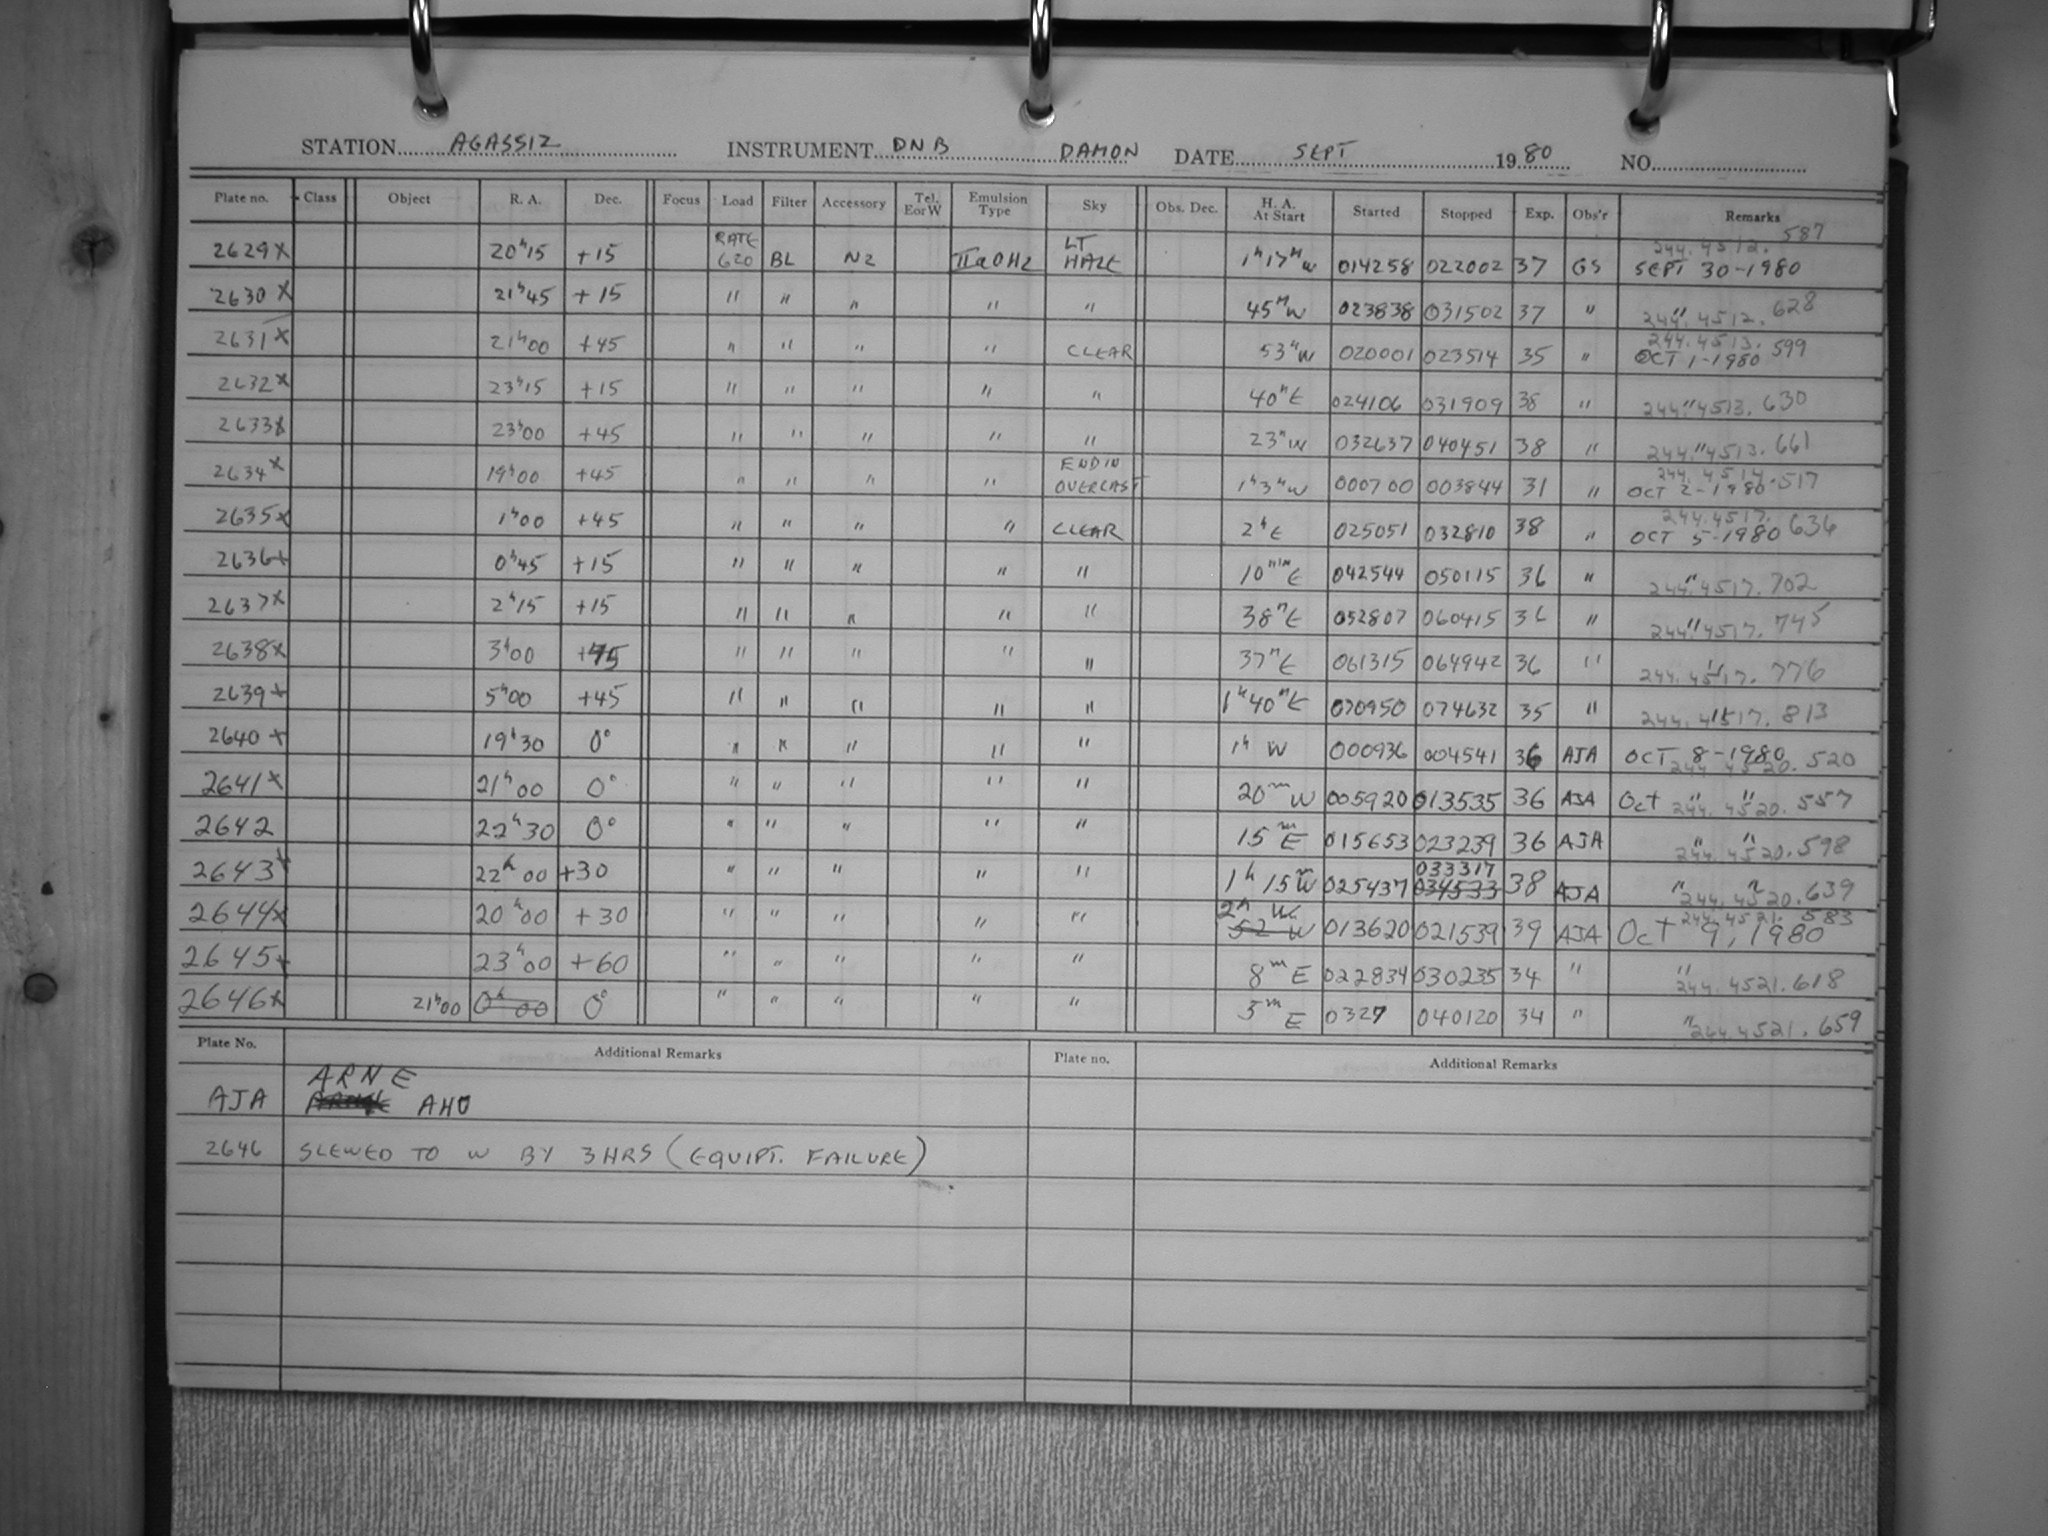 STATION AGASSIZ INSTRUMENT DNB DAMON DATE SEPT 1980 NO.
Plate no. Class Object R. A. Dec. Focus Load Filter Accessory Tel. E or W Emulsion Type Sky Obs. Dec. H. A. At Start Started Stopped Exp. Obs'r Remarks
2629 x 20h15 +15 RATE 620 BL N2 IIaOH2 LT HAZE 1h17m W 014258 022002 37 GS 244.4512.587 SEPT 30-1980
2630 x 21h45 +15 " " " " " 45m W 023838 031502 37 " " 244.4512.628
2631 x 21h00 +45 " " " " CLEAR 53m W 020001 023514 35 " 244.4513.599 OCT 1-1980
2632 x 23h15 +15 " " " " " 40m E 024106 031909 38 " " 244.4513.630
2633 x 23h00 +45 " " " " " 23m W 032637 040451 38 " " 244.4513.661
2634 x 19h00 +45 " " " " END IN OVERCAST 1h3m W 000700 003844 31 " 244.4514.517 OCT 2-1980
2635 x 1h00 +45 " " " " CLEAR 2h E 025051 032810 38 " 244.4517.636 OCT 5-1980
2636 x 0h45 +15 " " " " " 10min E 042544 050115 36 " " 244.4517.702
2637 x 2h15 +15 " " " " " 38m E 052807 060415 36 " " 244.4517.745
2638 x 3h00 +45 " " " " " 37m E 061315 064942 36 " " 244.4517.776
2639 x 5h00 +45 " " " " " 1h40m E 070950 074632 35 " " 244.4517.813
2640 x 19h30 0° " " " " " 1h W 000936 004541 36 AJA OCT 8-1980 244.4520.520
2641 x 21h00 0° " " " " " 20m W 005920 013535 36 AJA Oct " " 244.4520.557
2642 22h30 0° " " " " " 15m E 015653 023239 36 AJA " " 244.4520.598
2643 x 22h00 +30 " " " " " 1h 15m W 025437 033317 034533 38 AJA " " 244.4520.639
2644 x 20h00 +30 " " " " " 2h W 52 W 013620 021539 39 AJA 244.4521.583 Oct 9, 1980
2645 x 23h00 +60 " " " " " 8m E 022834 030235 34 " " 244.4521.618
2646 x 21h00 0h00 0° " " " " " 5m E 0327 040120 34 " " 244.4521.659
Plate No. Additional Remarks Plate no. Additional Remarks
AJA ARNE AHO
2646 SLEWED TO W BY 3HRS (EQUIPT. FAILURE)